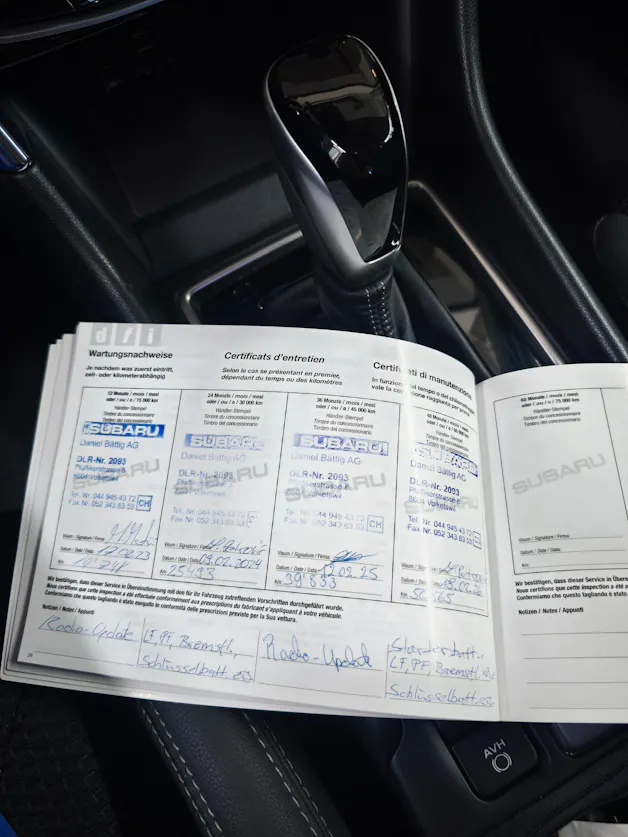 dfi
Wartungsnachweise
Certificats d'entretien
Certificati di manutenzione
Je nachdem was zuerst eintritt,
zeit- oder kilometerabhängig
Selon le cas se présentant en premier,
dépendant du temps ou des kilomètres
vale la
raggiunta per prima
12 Monate / mois / mesi
oder / ou / o / 15 000 km
Händler-Stempel
Timbre du concessionnaire
Timbro del concessionario
SUBARU
Daniel Bättig AG
DLR-Nr. 2093
8604 Volketswil
Tel. Nr. 044 945 43 72
Fax Nr. 052 343 63 53
CH
Visum / Signature / Firma:
Datum / Date / Data:
Km:
24 Monate / mois / mesi
oder / ou / o / 30 000 km
Händler-Stempel
Timbre du concessionnaire
Timbro del concessionario
SUBARU
Daniel Bättig AG
DLR-Nr. 2093
Tel. Nr. 044 945 43 72
Fax Nr. 052 343 63 53
Visum / Signature / Firma:
Datum / Date / Data:
09.02.2024
Km: 25493
36 Monate / mois / mesi
oder / ou / o / 45 000 km
Händler-Stempel
Timbre du concessionnaire
Timbro del concessionario
SUBARU
Daniel Bättig AG
DLR-Nr. 2093
8604 Volketswil
Tel. Nr. 044 945 43 72
Fax Nr. 052 343 63 53
CH
Visum / Signature / Firma:
Datum / Date / Data:
Km: 39'833
48 Monate / mois / mesi
oder / ou / o / 60 000 km
Händler-Stempel
Timbre du concessionnaire
Timbro del concessionario
SUBARU
Daniel Bättig AG
DLR-Nr. 2093
8604 Volketswil
Tel. Nr. 044 945 43 72
Fax Nr. 052 343 63 53
Visum / Signature / Firma:
Datum / Date / Data:
Km:
Wir bestätigen, dass dieser Service in Übereinstimmung mit den für Ihr Fahrzeug zutreffenden Vorschriften durchgeführt wurde.
Nous certifions que cette inspection a été effectuée conformément aux prescriptions du fabricant s'appliquant à votre véhicule.
Confermiamo che questo tagliando è stato eseguito in conformità delle prescrizioni previste per la Sua vettura.
Notizen / Notes / Appunti
Radio-Update
LF, PF, Bremsfl.,
Schlüsselbatt. ers.
Radio-Update
Starterbatt.,
LF, PF, Bremsfl.
Schlüsselbatt. ers.
60 Monate / mois / mesi
oder / ou / o / 75 000 km
Händler-Stempel
Timbre du concessionnaire
Timbro del concessionario
SUBARU
Visum / Signature / Firma:
Datum / Date / Data:
Km:
Wir bestätigen, dass dieser Service in Über
Nous certifions que cette inspection a été e
Confermiamo che questo tagliando è stato
Notizen / Notes / Appunti
AVH